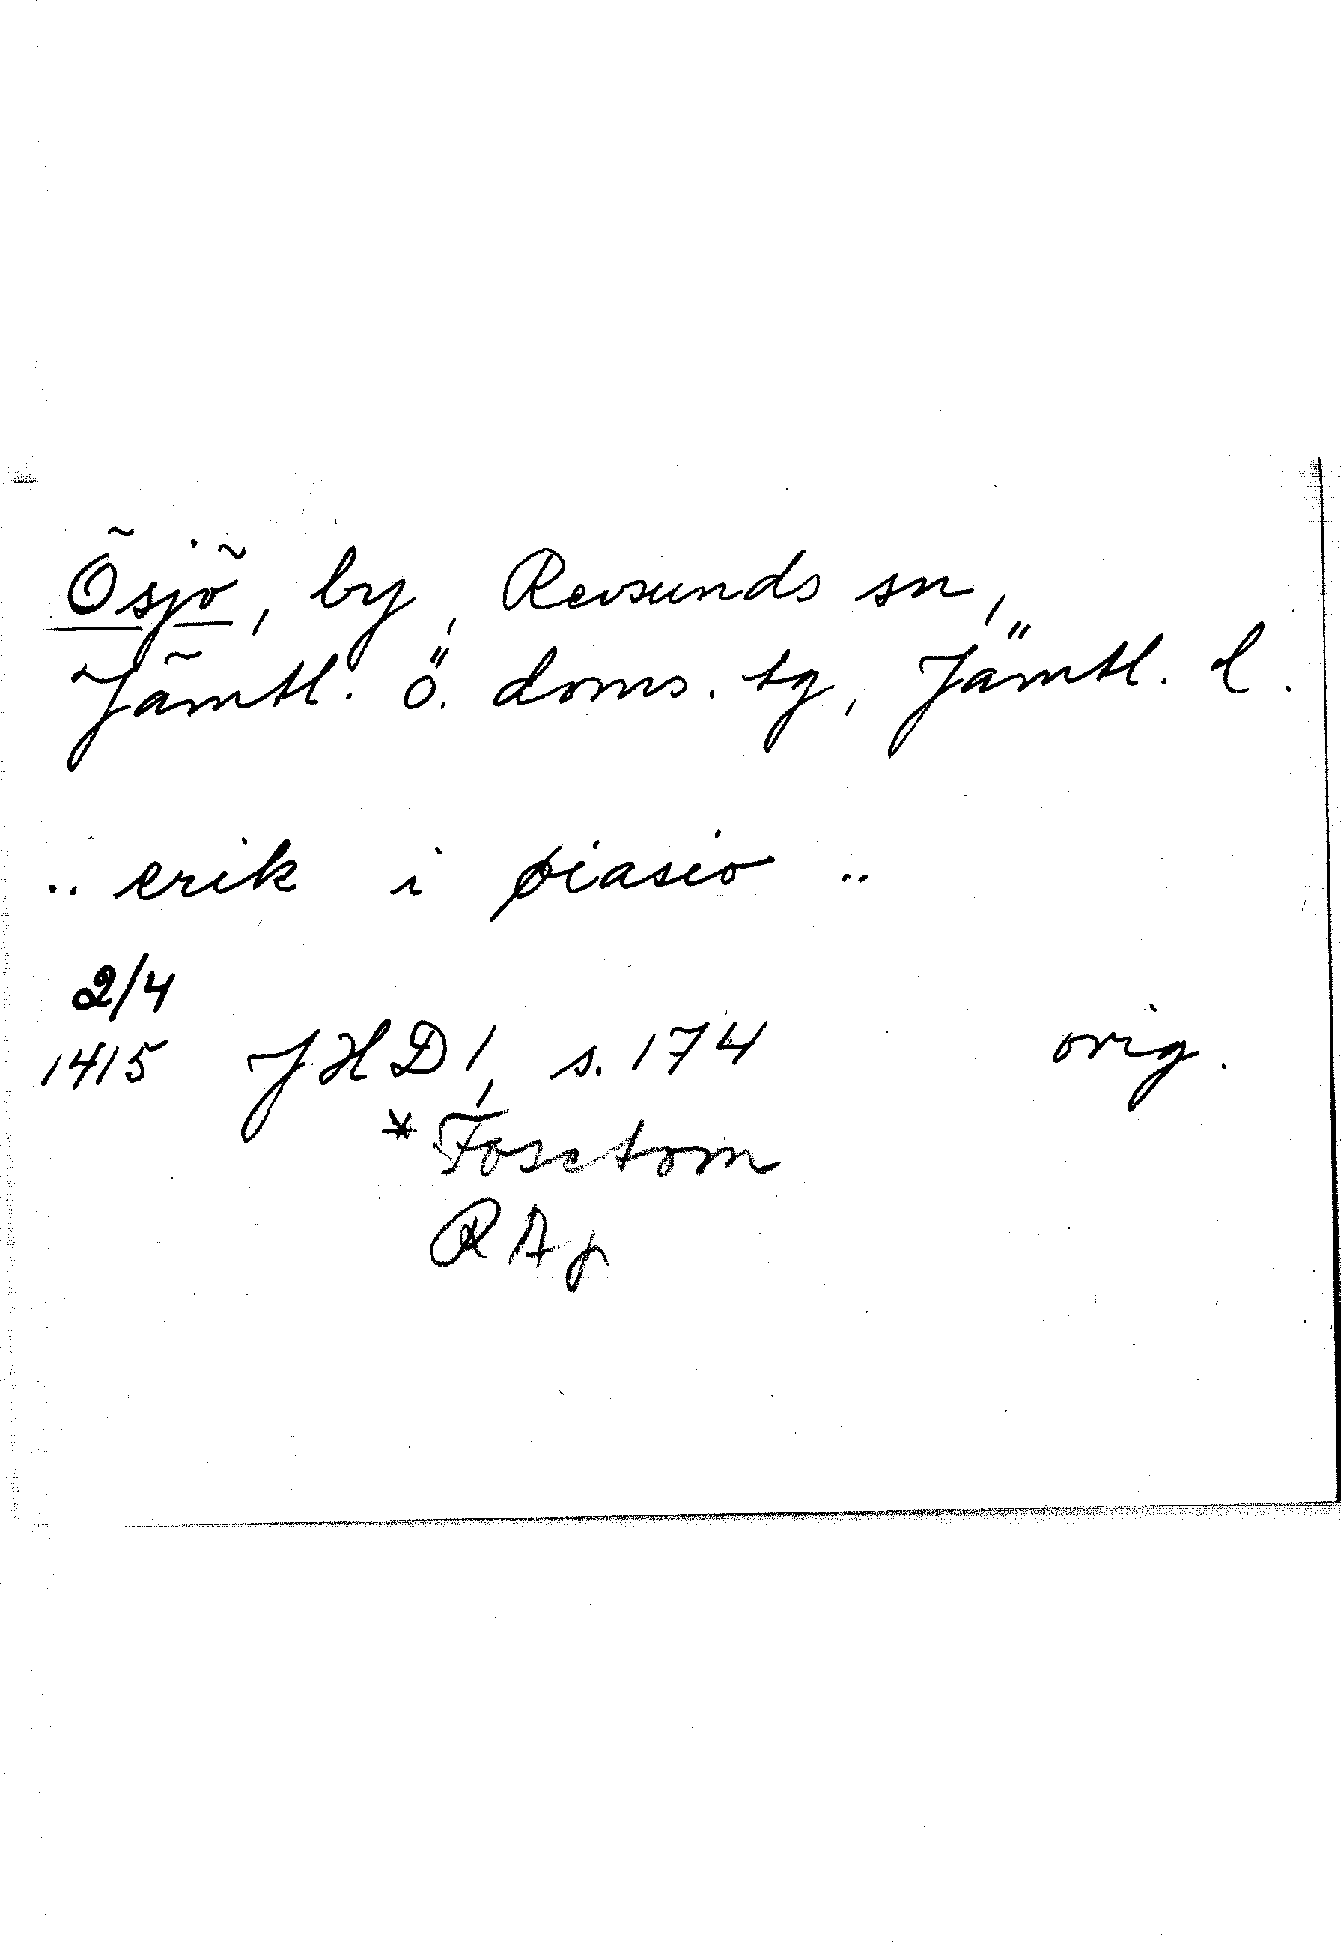 Ösjö, by, Revsunds sn,
Jämtl. ö. doms. tg, Jämtl. l.
.. erik i øiasio ..
2/4
1415 JHD 1, s. 174 orig.
* Fosctom
RAp